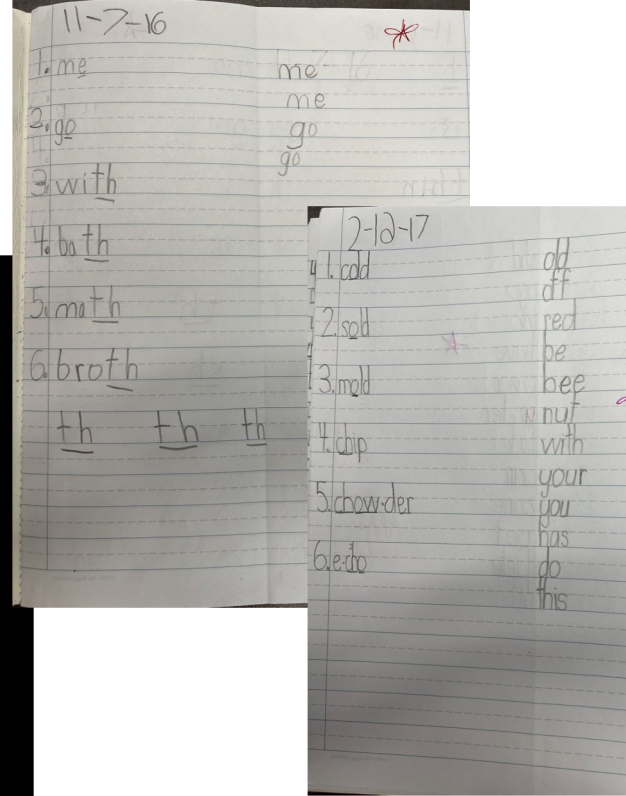 11-7-16
1. me
me
me
2. go
go
go
3. with
4. bath
5. math
6. broth
th th th
2-12-17
1. cold
2. sold
3. mold
4. chip
5. chow-der
6. e-cho
old
off
red
be
bee
nut
with
your
you
has
do
this